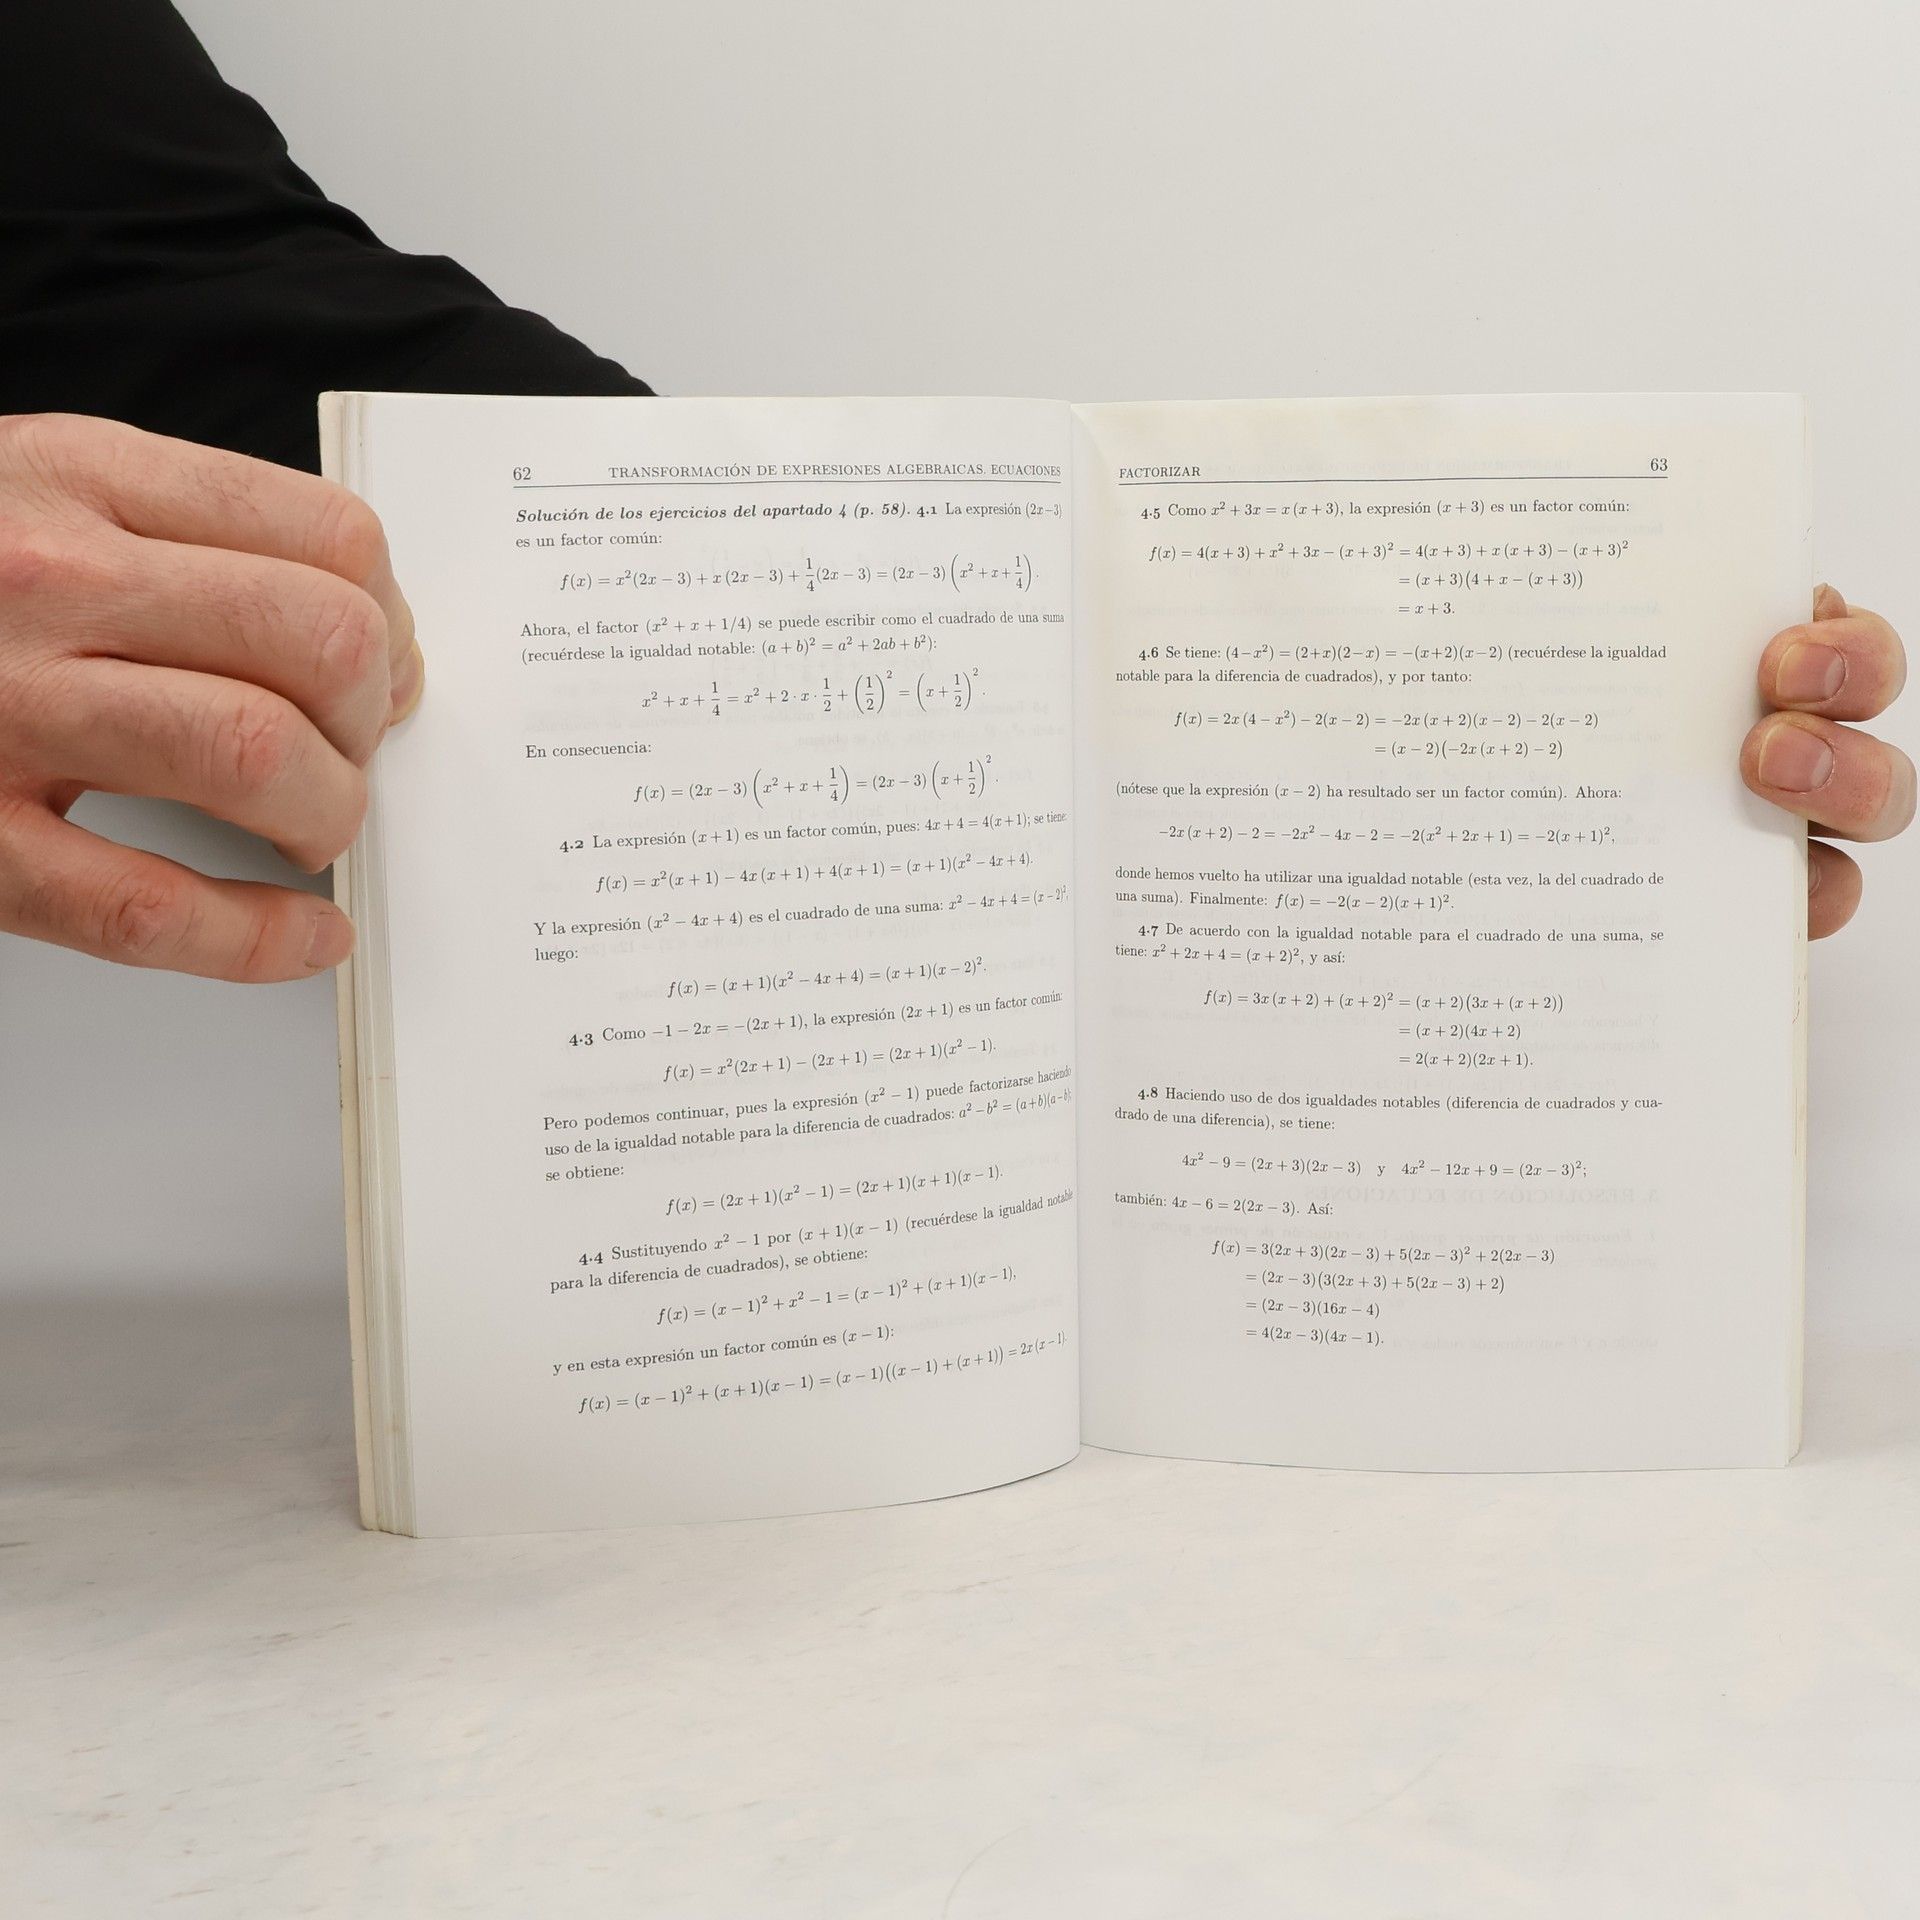 62 TRANSFORMACIÓN DE EXPRESIONES ALGEBRAICAS. ECUACIONES
Solución de los ejercicios del apartado 4 (p. 58). 4.1 La expresión (2x−3)
es un factor común:
f(x) = x²(2x − 3) + x (2x − 3) + 1/4(2x − 3) = (2x − 3)(x² + x + 1/4).
Ahora, el factor (x² + x + 1/4) se puede escribir como el cuadrado de una suma
(recuérdese la igualdad notable: (a + b)² = a² + 2ab + b²):
x² + x + 1/4 = x² + 2 · x · 1/2 + (1/2)² = (x + 1/2)².
En consecuencia:
f(x) = (2x − 3)(x² + x + 1/4) = (2x − 3)(x + 1/2)².
4.2 La expresión (x + 1) es un factor común, pues: 4x + 4 = 4(x + 1); se tiene:
f(x) = x²(x + 1) − 4x (x + 1) + 4(x + 1) = (x + 1)(x² − 4x + 4).
Y la expresión (x² − 4x + 4) es el cuadrado de una suma: x² − 4x + 4 = (x − 2)²,
luego:
f(x) = (x + 1)(x² − 4x + 4) = (x + 1)(x − 2)².
4.3 Como −1 − 2x = −(2x + 1), la expresión (2x + 1) es un factor común:
f(x) = x²(2x + 1) − (2x + 1) = (2x + 1)(x² − 1).
Pero podemos continuar, pues la expresión (x² − 1) puede factorizarse haciendo
uso de la igualdad notable para la diferencia de cuadrados: a² − b² = (a + b)(a − b);
se obtiene:
f(x) = (2x + 1)(x² − 1) = (2x + 1)(x + 1)(x − 1).
4.4 Sustituyendo x² − 1 por (x + 1)(x − 1) (recuérdese la igualdad notable
para la diferencia de cuadrados), se obtiene:
f(x) = (x − 1)² + x² − 1 = (x − 1)² + (x + 1)(x − 1),
y en esta expresión un factor común es (x − 1):
f(x) = (x − 1)² + (x + 1)(x − 1) = (x − 1)((x − 1) + (x + 1)) = 2x (x − 1).
FACTORIZAR 63
4.5 Como x² + 3x = x (x + 3), la expresión (x + 3) es un factor común:
f(x) = 4(x + 3) + x² + 3x − (x + 3)² = 4(x + 3) + x (x + 3) − (x + 3)²
= (x + 3)(4 + x − (x + 3))
= x + 3.
4.6 Se tiene: (4 − x²) = (2 + x)(2 − x) = −(x + 2)(x − 2) (recuérdese la igualdad
notable para la diferencia de cuadrados), y por tanto:
f(x) = 2x (4 − x²) − 2(x − 2) = −2x (x + 2)(x − 2) − 2(x − 2)
= (x − 2)(−2x (x + 2) − 2)
(nótese que la expresión (x − 2) ha resultado ser un factor común). Ahora:
−2x (x + 2) − 2 = −2x² − 4x − 2 = −2(x² + 2x + 1) = −2(x + 1)²,
donde hemos vuelto ha utilizar una igualdad notable (esta vez, la del cuadrado de
una suma). Finalmente: f(x) = −2(x − 2)(x + 1)².
4.7 De acuerdo con la igualdad notable para el cuadrado de una suma, se
tiene: x² + 2x + 4 = (x + 2)², y así:
f(x) = 3x (x + 2) + (x + 2)² = (x + 2)(3x + (x + 2))
= (x + 2)(4x + 2)
= 2(x + 2)(2x + 1).
4.8 Haciendo uso de dos igualdades notables (diferencia de cuadrados y cua-
drado de una diferencia), se tiene:
4x² − 9 = (2x + 3)(2x − 3) y 4x² − 12x + 9 = (2x − 3)²;
también: 4x − 6 = 2(2x − 3). Así:
f(x) = 3(2x + 3)(2x − 3) + 5(2x − 3)² + 2(2x − 3)
= (2x − 3)(3(2x + 3) + 5(2x − 3) + 2)
= (2x − 3)(16x − 4)
= 4(2x − 3)(4x − 1).